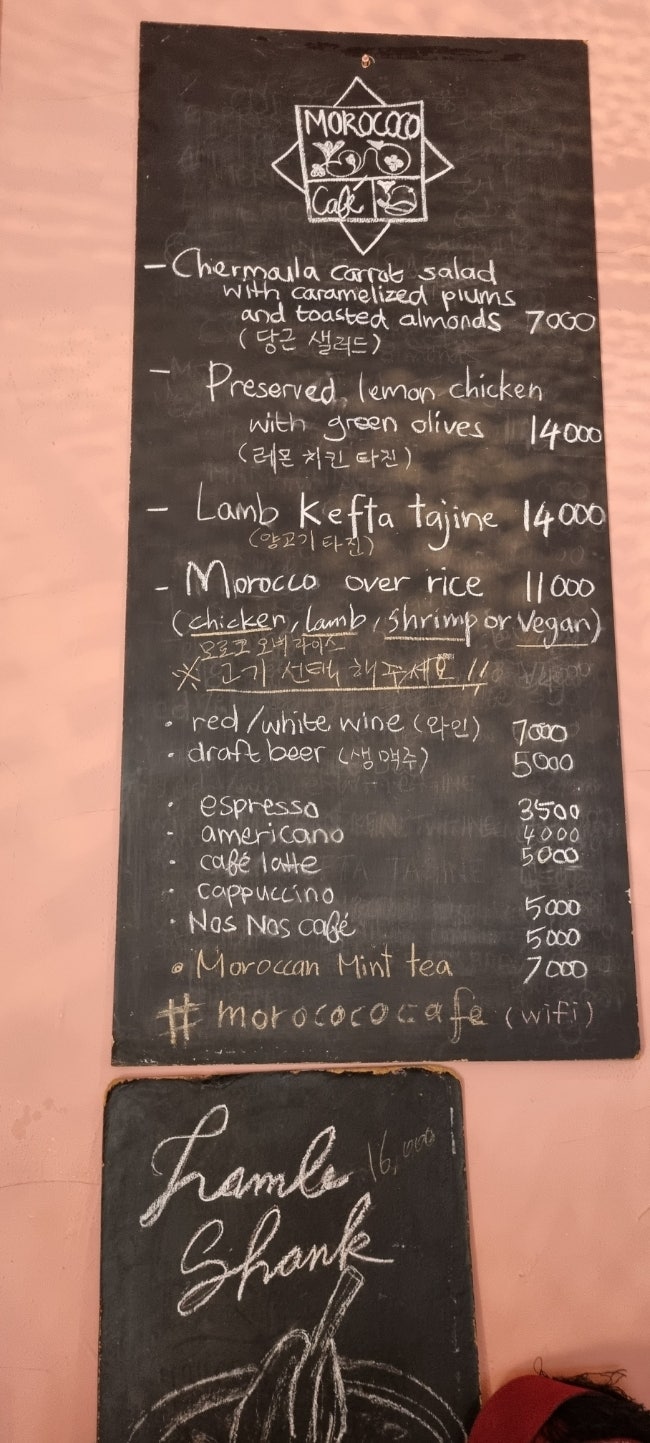 MOROCOCO
Café
- Chermoula carrot salad
with caramelized plums
and toasted almonds 7000
(당근 샐러드)
- Preserved lemon chicken
with green olives 14000
(레몬 치킨 타진)
- Lamb Kefta tajine 14000
(양고기 타진)
- Morocco over rice 11000
(chicken, lamb, shrimp or Vegan)
모로코 오버 라이스
※ 고기 선택 해주세요!!
· red/white wine (와인) 7000
· draft beer (생맥주) 5000
· espresso 3500
- americano 4000
· café latte 5000
· cappuccino 5000
· Nos Nos café 5000
• Moroccan Mint tea 7000
# morococo cafe (wifi)
Lamb 16,000
Shank